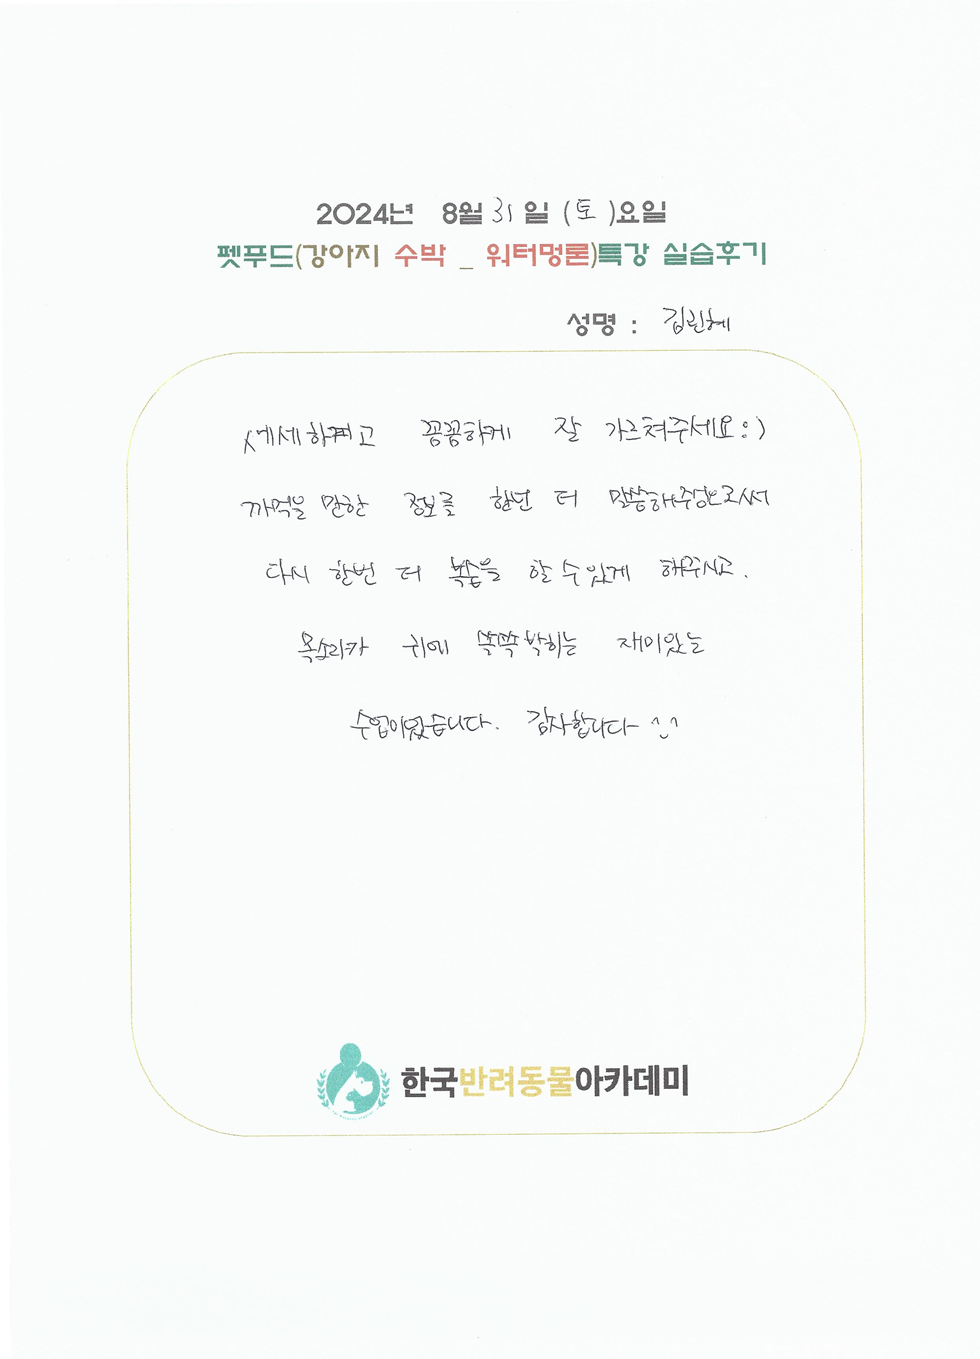 2024년 8월 31일 (토)요일
펫푸드(강아지 수박 _ 워터멍론)특강 실습후기
성명 : 김린혜
꼼꼼하게 잘 가르쳐주세요:)
까먹을 만한 정보를 한번 더 말씀해주심으로써
다시 한번 더 복습을 할 수 있게 해주시고.
목소리가 귀에 쏙쏙 박히는 재미있는
수업이었습니다. 감사합니다 ^^
한국반려동물아카데미